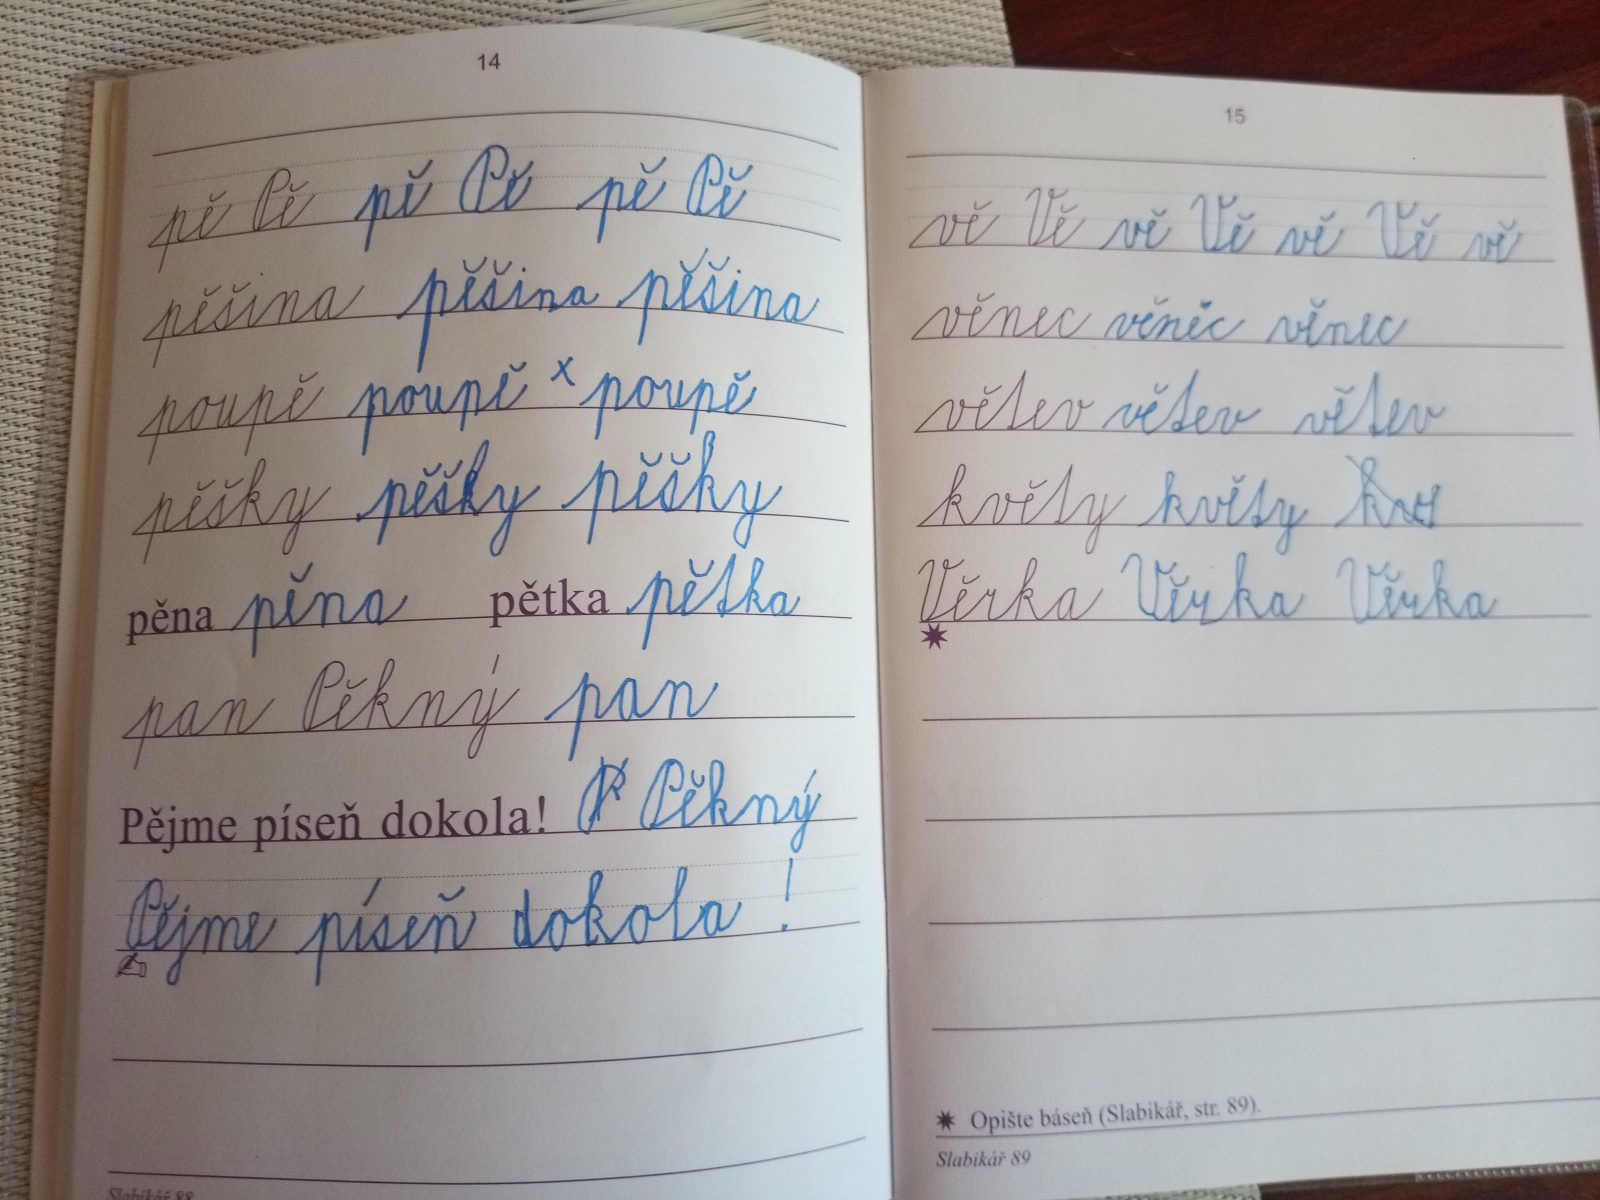 14
pě Pě pě Pě pě Pě
pěšina pěšina pěšina
poupě poupě x poupě
pěšky pěšky pěšky
pěna pěna pětka pětka
pan Pěkný pan
Pějme píseň dokola! Pěkný
Pějme píseň dokola!
Slabikář 88
15
vě Vě vě Vě vě Vě vě
věnec věnec věnec
větev větev větev
květy květy
Věrka Věrka Věrka
✷
✷ Opište báseň (Slabikář, str. 89).
Slabikář 89